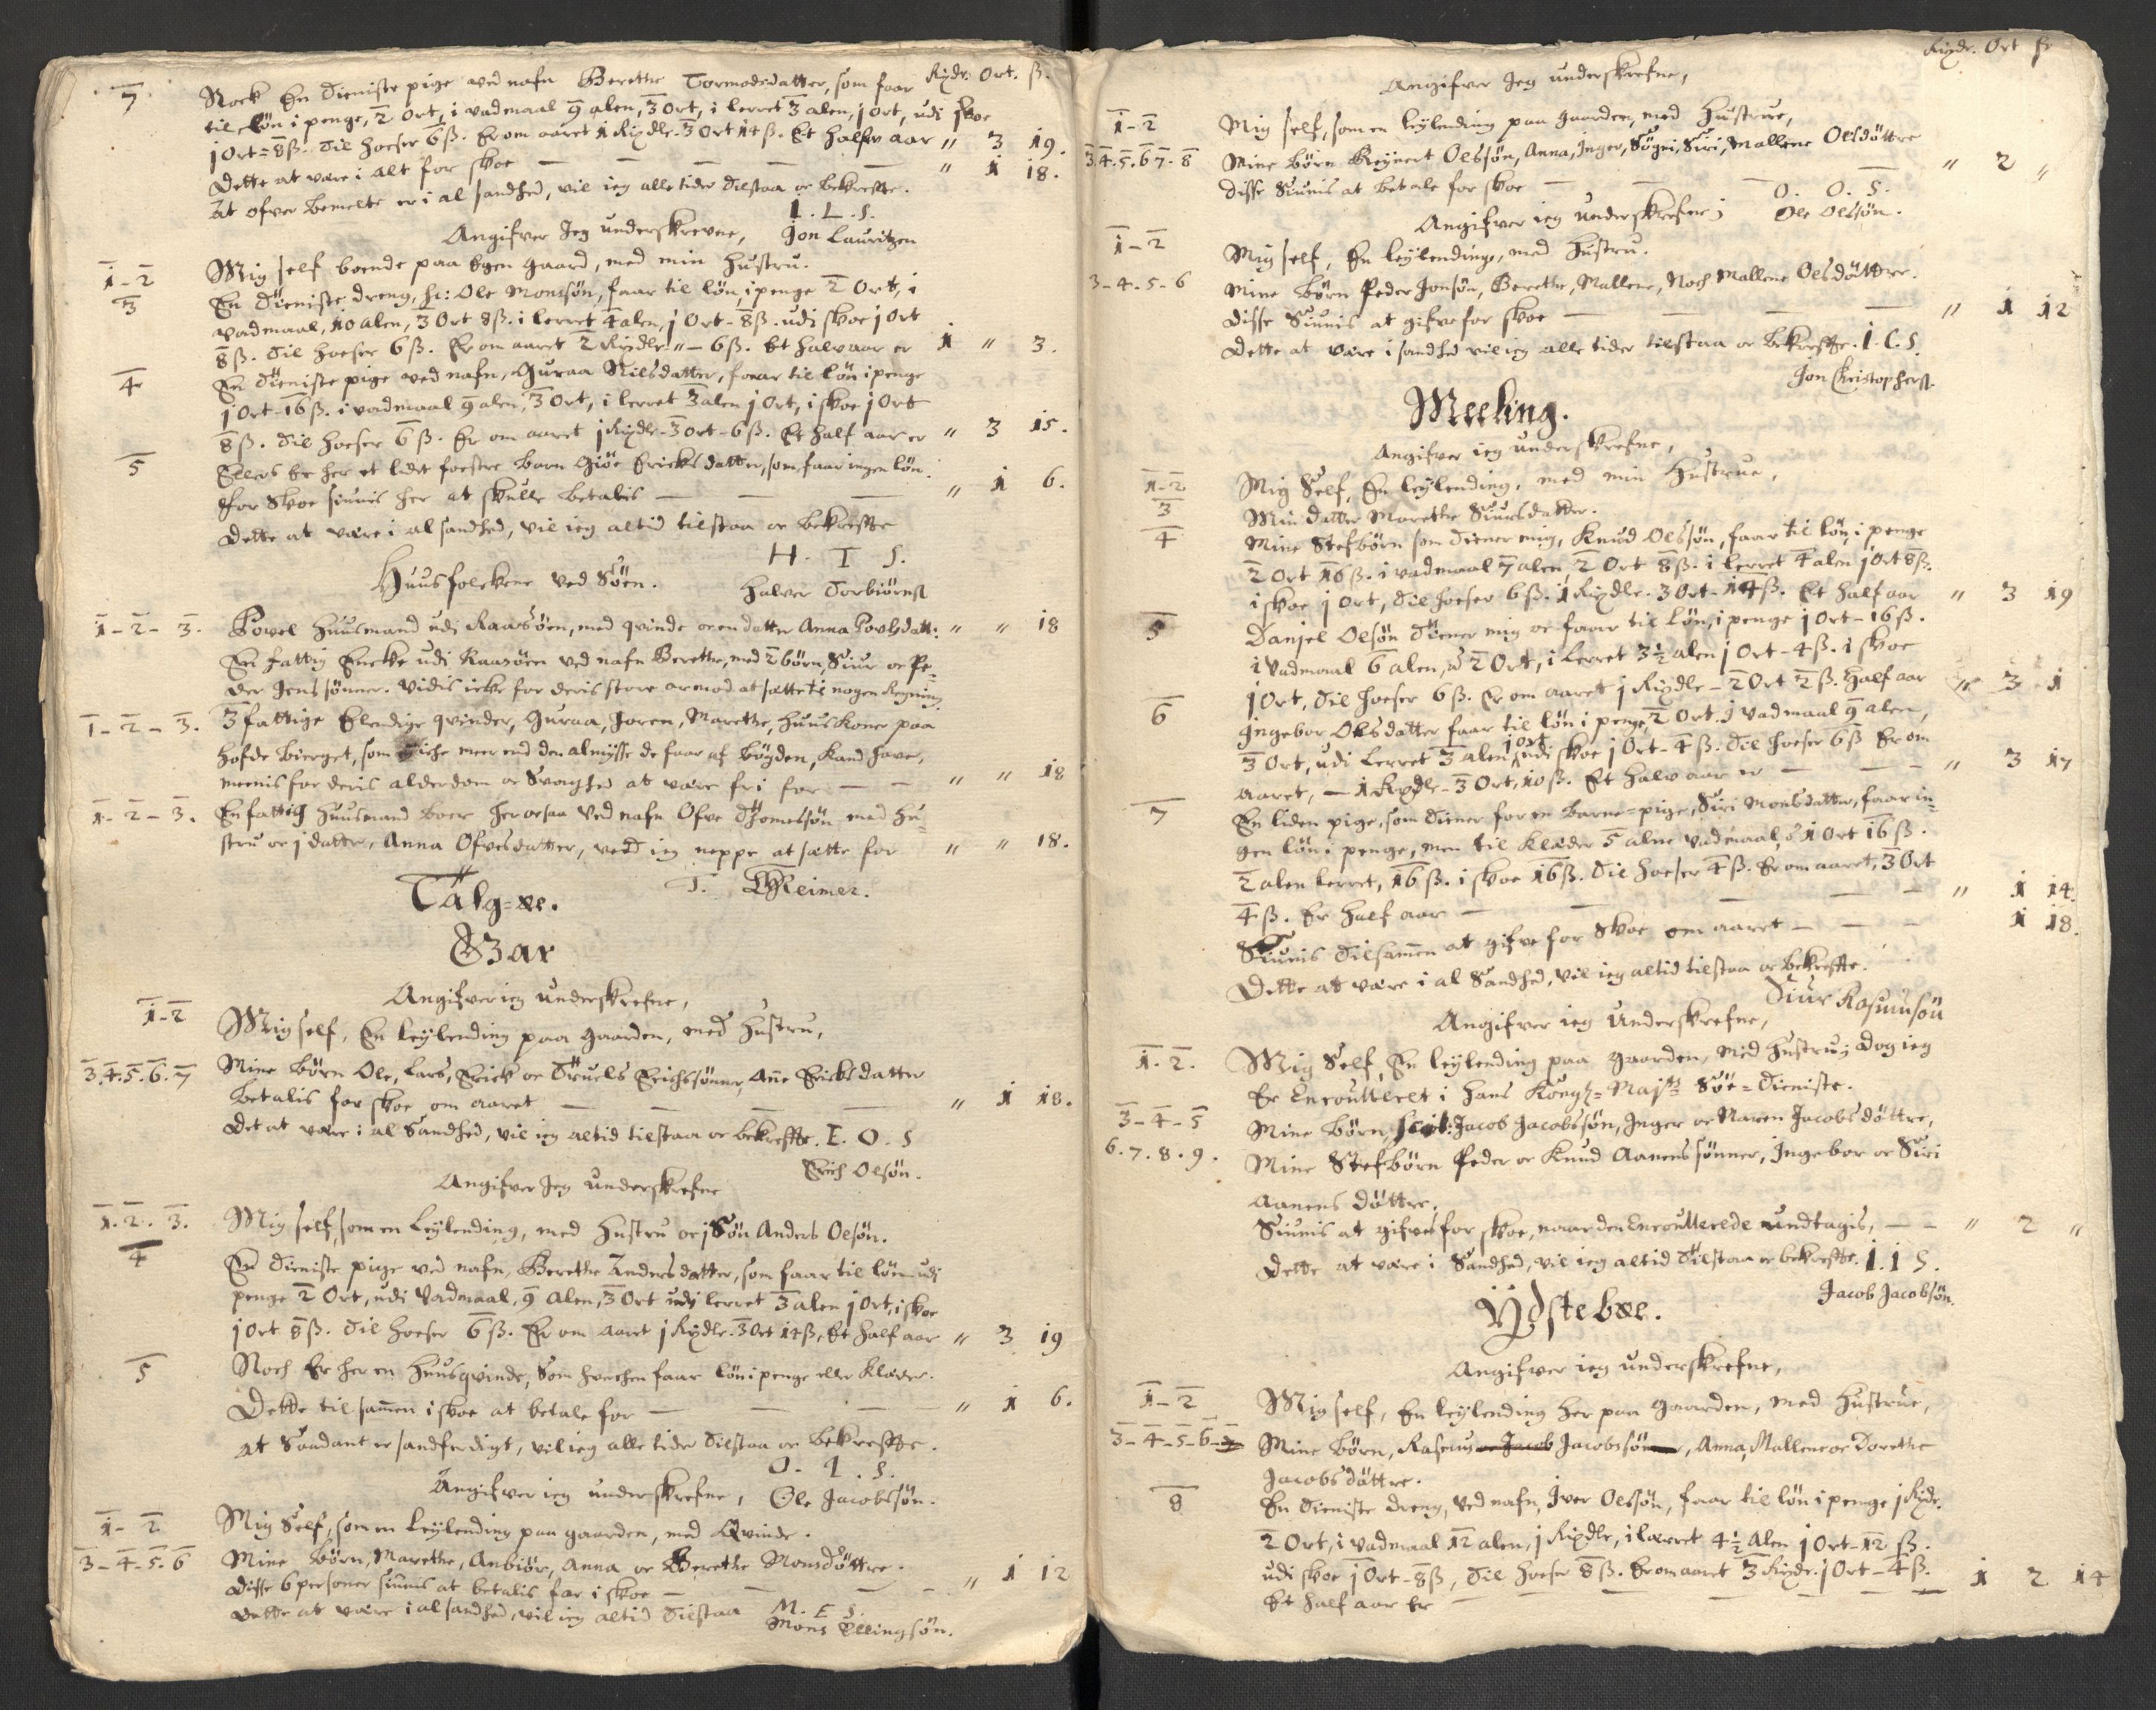 Rixdr. Ort. ß.
7 Nock En Tieniste pige ved nafn Berethe Tormodsdatter, som faar
til løn i penge, 2 Ort, i vadmaal 9 alen, 3 Ort, i lerret 3 alen, j Ort, udi skoe
j Ort = 8 ß. Til hoeser 6 ß. Er om aaret 1 Rixdlr. 3 Ort 14 ß. Et halfv aar " 3 19.
Dette at være i alt for skoe — — — — " 1 18.
At ofver bemelte er i al sandhed, vil ieg alle tider tilstaa oc bekreffte.
I. L. S.
Angifver Jeg underskrevne, Jon Lauritzen
1-2 Mig self boende paa Egen gaard, med min Hustru.
3 En Tieniste dreng, h: Ole Monssøn, faar til løn, i penge 2 Ort, i
vadmaal, 10 alen, 3 Ort 8 ß. i lerret 4 alen, j Ort - 8 ß. udi skoe j Ort
8 ß. Til hoeser 6 ß. Er om aaret 2 Rixdlr " — 6 ß. Et halv aar er 1 " 3.
4 En Tieniste pige ved nafn, Guraa Nilsdatter, faar til løn i penge
j Ort - 16 ß. i vadmaal 9 alen, 3 Ort, i lerret 3 alen j Ort, i skoe j Ort
8 ß. Til hoeser 6 ß. Er om aaret j Rixdlr - 3 Ort - 6 ß. Et half aar er " 3 15.
5 Ellers Er her et lidet foestre barn Giøe Ericksdatter, som faar ingen løn.
For Skoe siunis her at skulle betalis — — — " 1 6.
Dette at være i al sandhed, vil ieg altid tilstaa oc bekreffte
H. T S.
Huusfolckene ved Søen. Halver Torbiørns
1-2-3. Povel Huusmand udi Raassøen, med qvinde oc en datter Anna Povlsdatt: " " 18
En fattig Encke udi Raasøen ved nafn Berethe, med 2 børn, Siur oc Pe-
der Jens sønner. Vidis icke for deris store armod at sætte ti nogen Regning.
1-2-3. 3 fattige Elendige qvinder, Guraa, Joren, Marethe, huuskoner paa
Hofde bierget, som iche meer end den almysse de faar af bøyden, kand have,
meenis for deris alderdom oc Svaghed at være fri for — — " " 18
1-2-3. En fattig Huusmand boer her ocsaa ved nafn Ofve Thomessøn med Hu-
stru oc j datter, Anna Ofvesdatter, veed ieg neppe at sætte for " " 18.
T. Reimer.
Talg=xe.
Gar
Angifver ieg underskrefne,
1-2 Mig self, En leylending paa gaarden, med Hustru,
3.4.5.6.7 Mine børn Ole, Lars, Erick oc Truels Erichssønner, Ane Ericksdatter
betalis for skoe om aaret — — — — " 1 18.
Det at være i al Sandhed, vil ieg altid tilstaa oc bekreffte. E. O. S
Erich Olsøn.
Angifver Jeg underskrefne
1.2.3. Mig self, som en leylending, med Hustru oc j Søn Anders Olsøn.
4 En Tieniste pige ved nafn, Berethe Andersdatter, som faar til løn udi
penge 2 Ort, udi vadmaal, 9 Alen, 3 Ort udj lerret 3 alen j Ort, i skoe
j Ort 8 ß. Til hoeser 6 ß. Er om aaret j Rixdlr. 3 Ort 14 ß, Et half aar " 3 19
5 Noch Er her en Huusqvinde, Som hverchen faar løn i penge eller Klæder.
Dette til samen i skoe at betale for — — — " 1 6.
At Saadant er sandferdigt, vil ieg alle tider tilstaa oc bekreffte.
O. I. S.
Angifver ieg underskrefne, Ole Jacobssøn.
1-2 Mig Self, som en leylending paa gaarden, med Qvinde.
3-4-5.6 Mine børn, Marethe, Anbiør, Anna oc Berethe Monsdøttre.
Disse 6 personer siunis at betalis for i skoe — — — " 1 12
Dette at være i al sandhed, vil ieg altid tilstaa M. E S.
Mons Ellingsøn.
Rixdr. Ort ß
Angifver Jeg underskrefne,
1-2 Mig self, som en leylending paa gaarden, med Hustrue,
3.4.5.6.7.8 Mine børn Reynert Olssøn, Anna, Inger, Søgni, Siri, Mallene Olsdøttre
Disse Siunis at betale for skoe — — — " 2 "
O. O. S.
Angifver ieg underskrefne; Ole Olssøn.
1-2 Mig self, En leylending, med Hustru.
3-4-5-6 Mine børn Peder Jonsøn, Berethe, Mallene, Noch Mallene Olsdøttre.
Disse Siunis at gifve for skoe — — — " 1 12
Dette at være i sandhed vil ieg alle tider tilstaa oc bekreffte. I. C. S.
Jon Christophers.
Meeling.
Angifver ieg underskrefne,
1-2 Mig Self, En leylending, med min Hustrue,
3 Min datter Marethe Siursdatter.
4 Mine Stefbørn som tiener mig, Knud Olssøn, faar til løn, i penge
2 Ort 16 ß. i vadmaal 7 alen, 2 Ort 8 ß. i lerret 4 alen j Ort 8 ß.
i skoe j Ort, til hoeser 6 ß. 1 Rixdlr. 3 Ort - 14 ß. Et half aar " 3 19
5 Daniel Olsøn tiener mig oc faar til løn, i penge j Ort - 16 ß.
i vadmaal 6 alen, 2 Ort, i Lerret 3½ alen j Ort - 4 ß. i skoe
j Ort, Til hoeser 6 ß. Er om aaret j Rixdlr - 2 Ort 2 ß. Half aar " 3 1
6 Ingebor Olsdatter faar til løn i penge, 2 Ort. j vadmaal 9 alen,
3 Ort, udi Lerret 3 alen, j Ort udi skoe j Ort - 4 ß. Til hoeser 6 ß Er om
aaret, — 1 Rixdlr - 3 Ort, 10 ß. Et halv aar er — — — " 3 17
7 En liden pige, som tiener for en barne=pige, Siri Monsdatter, faar in-
gen løn i penge, men til Klæder 5 alne vadmaal, 1 Ort 16 ß.
2 alen lerret, 16 ß. i skoe 16 ß. Til hoeser 4 ß. Er om aaret, 3 Ort
4 ß. Er half aar — — — — " 1 14.
Siunis tilsamen at gifve for Skoe om aaret — — — 1 18.
Dette at være i al Sandhed, vil ieg altid tilstaa oc bekreffte.
Siur Rasmusøn
Angifver ieg underskrefne,
1.2. Mig Self, En leylending paa gaarden, Med Hustru; Dog ieg
Er Enroulleret i Hans Kongl= Majts Søe=Tieniste.
3-4-5 Mine børn, Jacob Jacobssøn, Inger oc Maren Jacobsdøttre,
6.7.8.9. Mine Stefbørn Peder oc Knud Aanenssønner, Ingebor oc Siri
Aanens døttre.
Siunis at gifves for skoe, naar den Enroullerede undtagis, — — " 2 "
Dette at være i Sandhed, vil ieg altid tilstaa oc bekreffte. I. I S.
Jacob Jacobsøn.
Ydstebøe.
Angifver ieg underskrefne,
1-2 Mig self, En leylending her paa gaarden, med Hustrue,
3-4-5-6-7 Mine børn, Rasmus oc Jacob Jacobssønner, Anna, Mallene oc Dorethe
Jacobs døttre.
8 En Tieniste dreng, ved nafn, Iver Olssøn, faar til løn i penge j Rixdr.
2 Ort, i vadmaal 12 alen, j Rixdlr, i lærret 4½ Alen j Ort - 12 ß.
udi skoe j Ort - 8 ß, Til hoeser 8 ß. Er om aaret 3 Rixdr. j Ort - 4 ß.
Et half aar Er — — — — 1 2 14